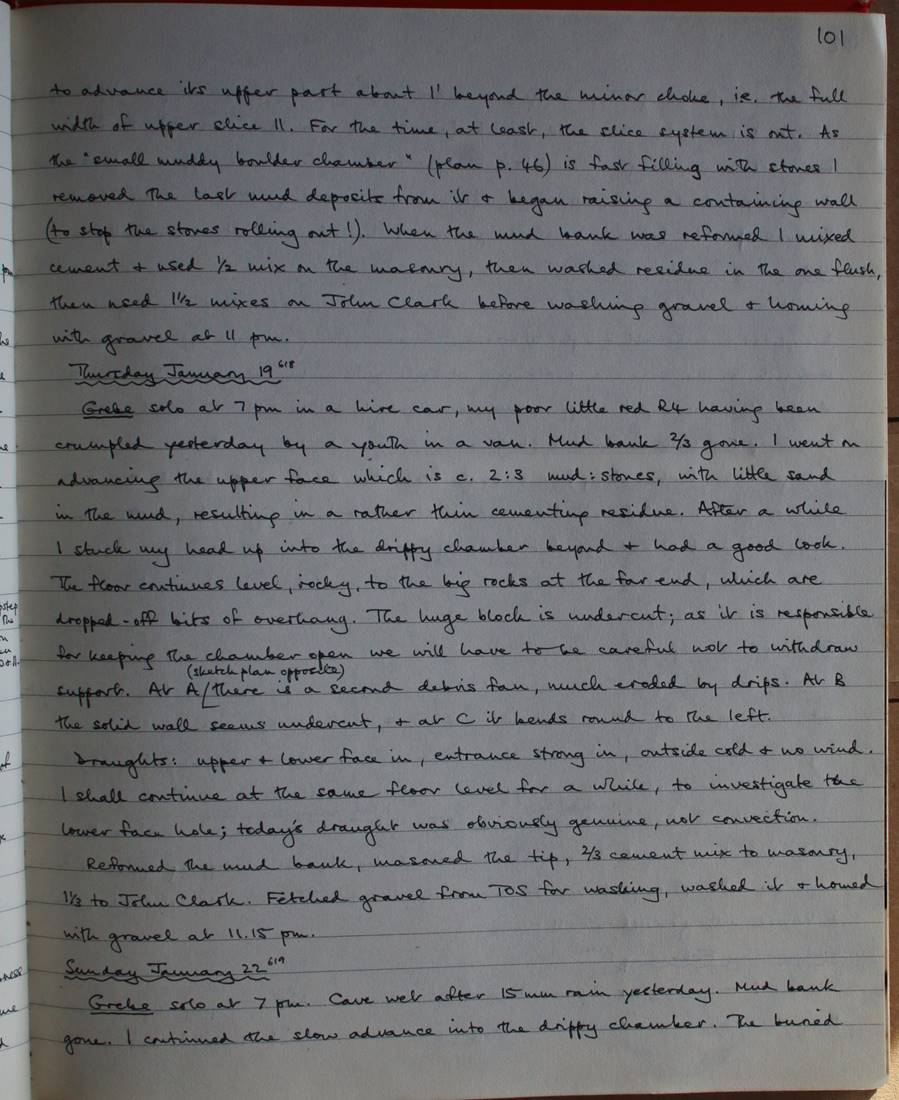 101
to advance its upper part about 1' beyond the minor choke, i.e. the full
width of upper slice 11. For the time, at least, the slice system is out. As
the "small muddy boulder chamber" (plan p. 46) is fast filling with stones I
removed the last mud deposits from it + began raising a containing wall
(to stop the stones rolling out!). When the mud bank was reformed I mixed
cement + used 1/2 mix on the masonry, then washed residue in the one flush,
then used 1 1/2 mixes on John Clark before washing gravel + homing
with gravel at 11 pm.
Thursday January 19 618
Grebe solo at 7 pm in a hire car, my poor little red R4 having been
crumpled yesterday by a youth in a van. Mud bank 2/3 gone. I went on
advancing the upper face which is c. 2:3 mud:stones, with little sand
in the mud, resulting in a rather thin cementing residue. After a while
I stuck my head up into the drippy chamber beyond + had a good look.
The floor continues level, rocky, to the big rocks at the far end, which are
dropped-off bits of overhang. The huge block is undercut; as it is responsible
for keeping the chamber open we will have to be careful not to withdraw
(sketch plan opposite)
support. At A there is a second debris fan, much eroded by drips. At B
the solid wall seems undercut, + at C it bends round to the left.
Draughts: upper + lower face in, entrance strong in, outside cold + no wind.
I shall continue at the same floor level for a while, to investigate the
lower face hole; today's draught was obviously genuine, not convection.
Reformed the mud bank, masoned the tip, 2/3 cement mix to masonry,
1 1/3 to John Clark. Fetched gravel from TOS for washing, washed it + homed
with gravel at 11.15 pm.
Sunday January 22 619
Grebe solo at 7 pm. Cave wet after 15 mm rain yesterday. Mud bank
gone. I continued the slow advance into the drippy chamber. The buried